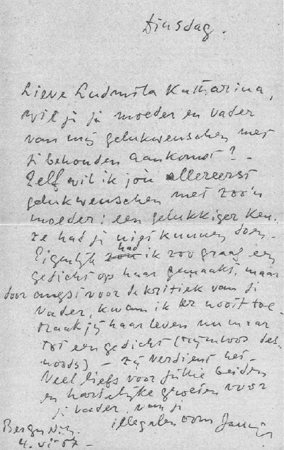 Dinsdag.
Lieve Ludmila Katharina,
Wil jij je moeder en vader
van mij gelukwenschen met
je behouden aankomst? -
Zelf wil ik jou allereerst
gelukwenschen met zoo'n
moeder: een gelukkiger keu-
ze had je niet kunnen doen.
Eigenlijk had ik zoo graag een
gedicht op haar gemaakt, maar
door angst voor de kritiek van je
vader, kwam ik er nooit toe.
Maak jij haar leven nu maar
tot een gedicht (rijmloor des-
noods) - zij verdient het.
Veel liefs voor jullie beiden
en hartelijke groeten voor
je vader, van je
illegalen oom
Bergen N.H.
4.VI.57.